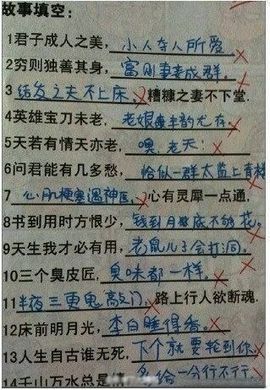 故事填空：
1君子成人之美，小人夺人所爱
2穷则独善其身，富则妻妾成群。
3结发之夫不上床，糟糠之妻不下堂.
4英雄宝刀未老，老娘丰韵尤存。
5天若有情天亦老，嗅老天！
6问君能有几多愁，恰似一群太监上青楼
7心肌梗塞遇神医，心有灵犀一点通.
8书到用时方恨少，钱到月底不够花。
9天生我才必有用，老鼠儿子会打洞。
10三个臭皮匠，臭味都一样。
11半夜三更鬼敲门，路上行人欲断魂.
12床前明月光，李白睡得香。
13人生自古谁无死，下个就要轮到你。
14千山万水总是情 给一分行不行